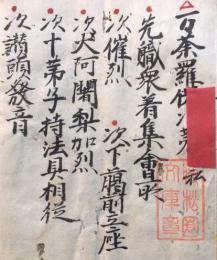 曼荼羅供次第 私
先職衆著集會所
次催烈　次下﨟前立座
次大阿闍梨加烈
次十弟子持法具相従
次讃頭發音